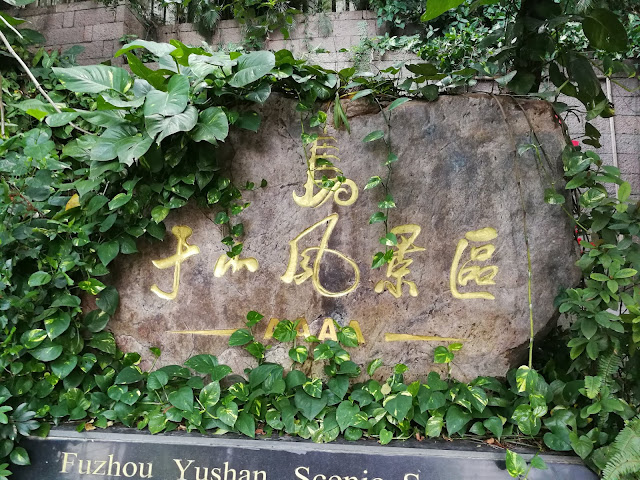 于山風景區
AAAA
Fuzhou Yushan Scenic